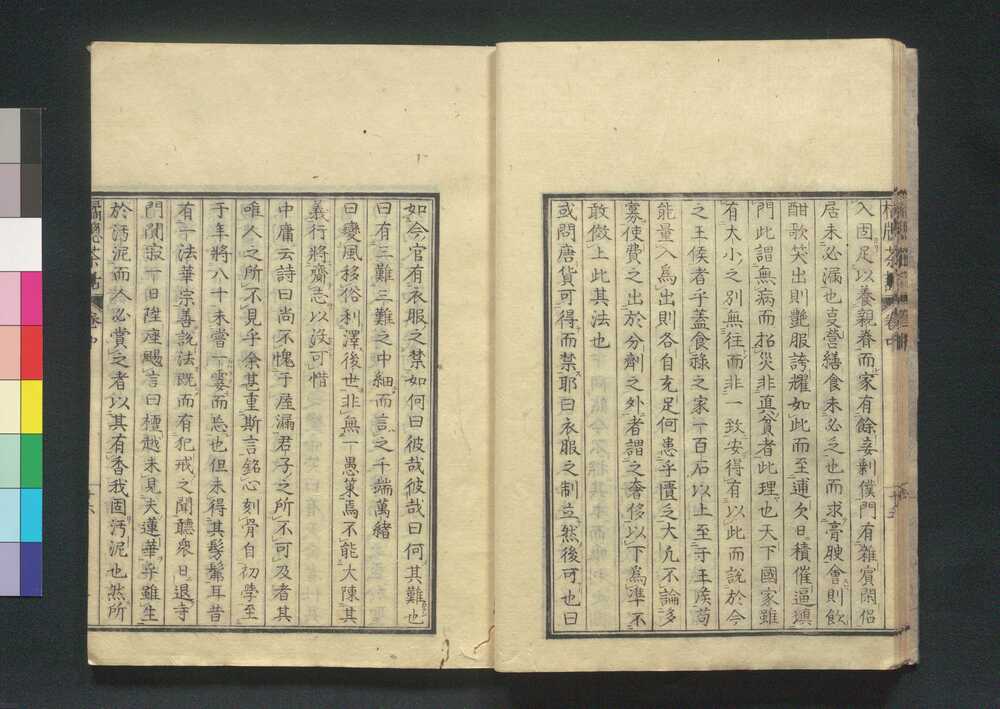 入固足以養親眷而家有餘妾剰僕門有雜賓閑侶
居未必漏也亟營繕食未必乏也而求膏腴會則飲
酣歌笑出則艶服誇耀如此而至逋欠日積催逼塡
門此謂無病而招災非真貧者此理也天下國家雖
有大小之別無徃而非一致安得有以此而說於今
之王侯者乎蓋食祿之家一百石以上至于王侯苟
能量入爲出則各自充足何患乎匱乏大凢不論多
寡使費之出於分劑之外者謂之奢侈以下爲凖不
敢傚上此其法也
或問唐貨可得而禁耶曰衣服之制立然後可也曰
如今官有衣服之禁如何曰彼哉彼哉曰何其難也
曰有三難三難之中細而言之千端萬緒
曰變風移俗利澤後世非無一愚策焉不能大陳其
義行將齎志以沒可惜
中庸云詩曰尚不愧于屋漏君子之所不可及者其
唯人之所不見乎余甚重斯言銘心刻骨自初學至
于年將八十未嘗一霎而忘也但未得其髣髴耳昔
有一法華宗善說法既而有犯戒之聞聽衆日退寺
門闃寂一日陞座颺言曰檀越未見夫蓮華乎雖生
於汚泥而人必賞之者以其有香我固汚泥也然所
橘窓茶話 卷中 廿六